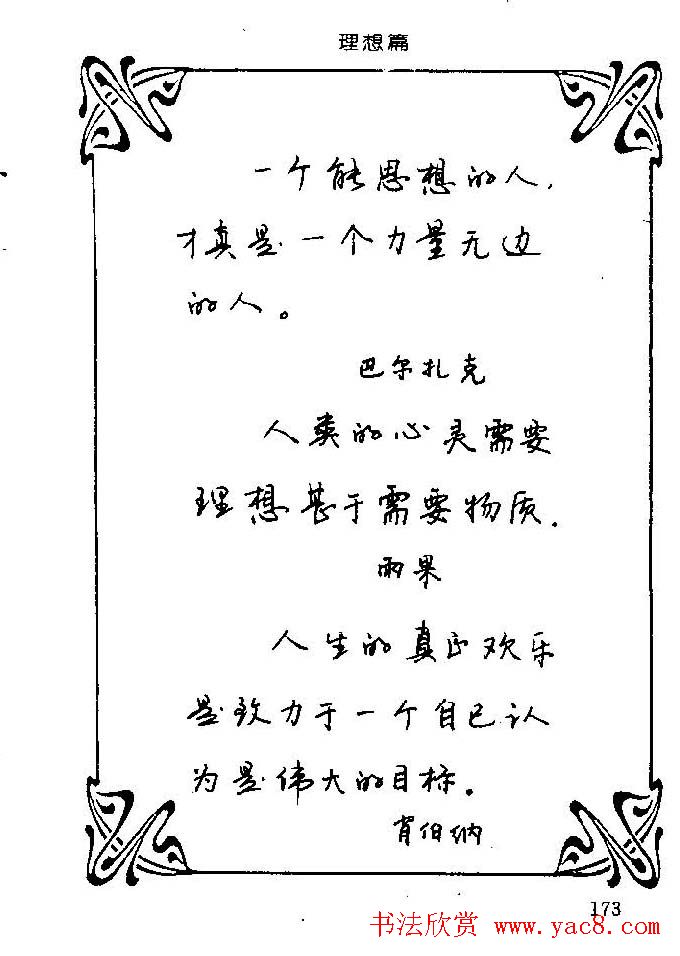 理想篇
一个能思想的人,
才真是一个力量无边
的人。
巴尔扎克
人类的心灵需要
理想甚于需要物质.
雨果
人生的真正欢乐
是致力于一个自己认
为是伟大的目标。
肖伯纳
173
书法欣赏 www.yac8.com